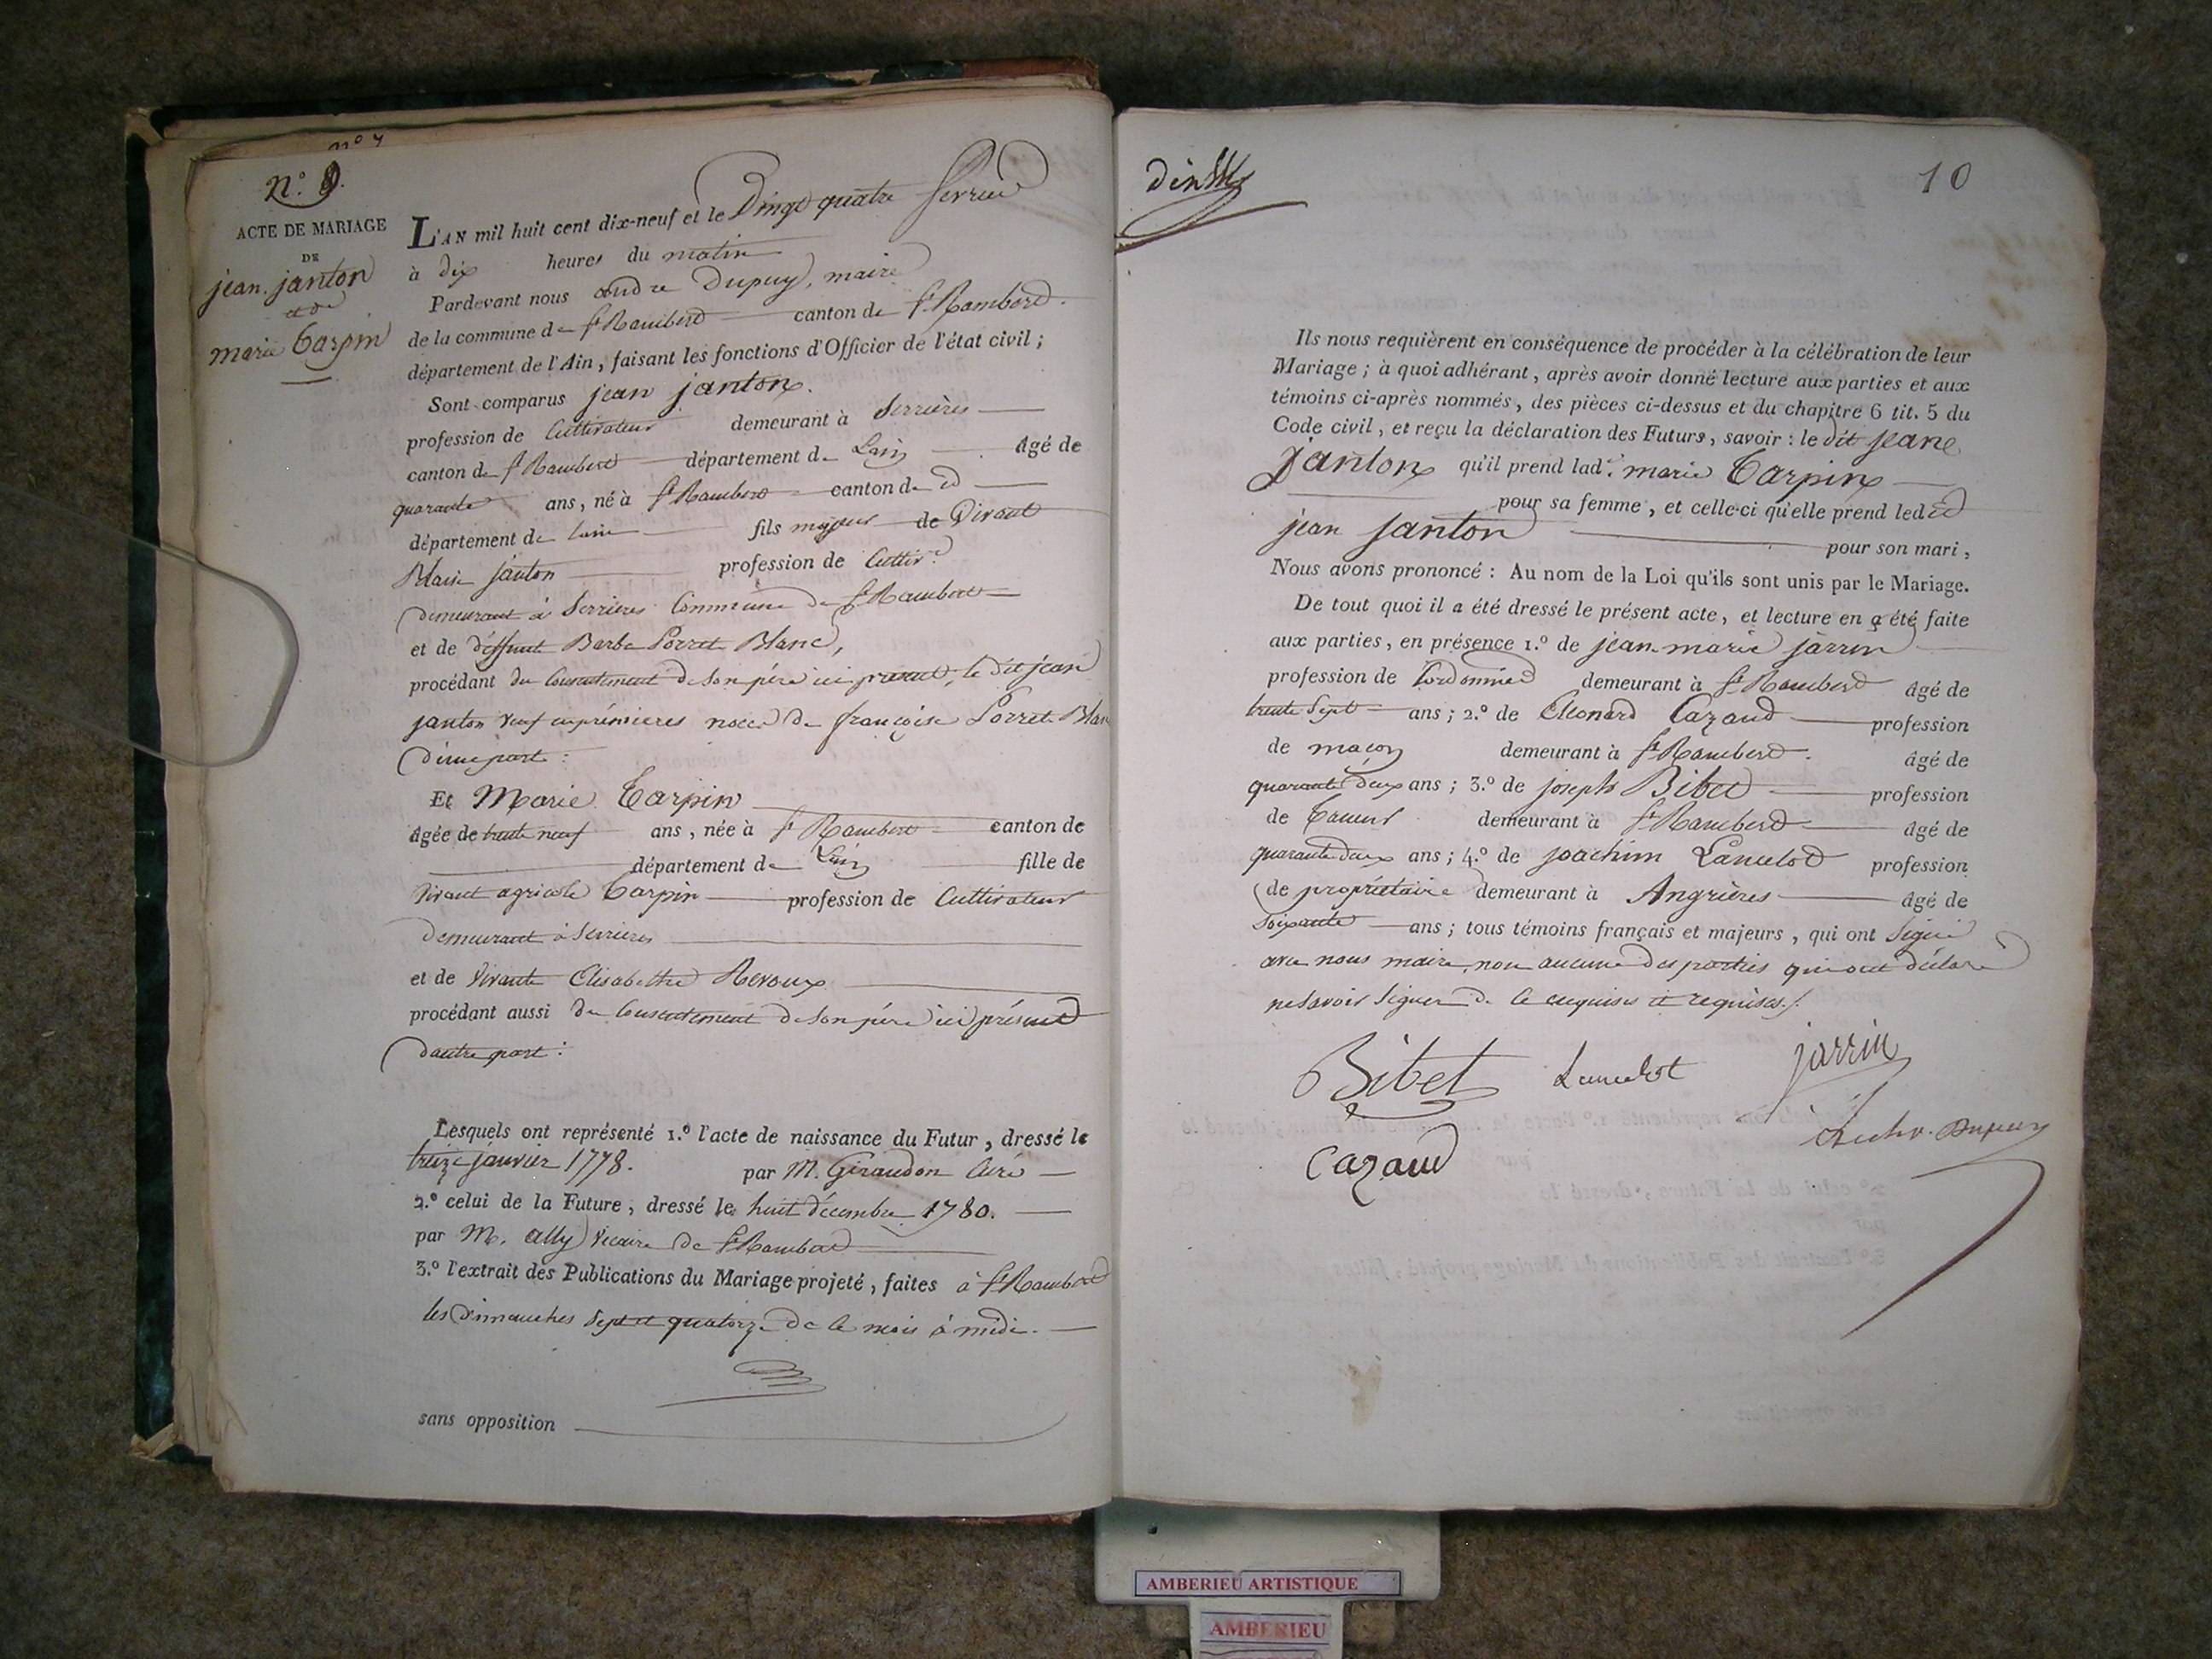 n.° 7
N.° 9.
ACTE DE MARIAGE
DE
jean janton
et de
marie Carpin
L'AN mil huit cent dix-neuf et le Vingt quatre fevrier
à dix heures du matin
Pardevant nous andre Dupuy, maire
de la commune de St Rambert canton de St Rambert.
département de l'Ain, faisant les fonctions d'Officier de l'état civil ;
Sont comparus jean janton.
profession de Cultivateur demeurant à Serrières
canton de St Rambert département de Lain âgé de
quarante ans, né à St Rambert canton de id
département de lain fils majeur de Vivant
Blaise janton profession de Cultiv.r
demeurant à Serrieres Commune de St Rambert
et de déffunte Barbe Porret Blanc,
procédant du Consentement de son père ici présent, le dit jean
janton veuf en prémieres noces de françoise Porret Blanc
d'une part :
Et Marie Carpin
âgée de trente neuf ans, née à St Rambert canton de
département de Lain fille de
vivant agricole Carpin profession de Cultivateur
demeurant à Serrieres
et de vivante Elisabethe Revoux
procédant aussi du Consentement de son père ici présent
d'autre part :
Lesquels ont représenté 1.° l'acte de naissance du Futur, dressé le
treize janvier 1778. par M. Giraudon Curé
2.° celui de la Future, dressé le huit décembre 1780.
par M. ally vicaire de St Rambert
3.° l'extrait des Publications du Mariage projeté, faites à St Rambert
les dimanches sept et quatorze de ce mois à midi.
sans opposition
10
Ils nous requièrent en conséquence de procéder à la célébration de leur
Mariage ; à quoi adhérant, après avoir donné lecture aux parties et aux
témoins ci-après nommés, des pièces ci-dessus et du chapitre 6 tit. 5 du
Code civil, et reçu la déclaration des Futurs, savoir : le dit jean
janton qu'il prend lad.e marie Carpin
pour sa femme, et celle-ci qu'elle prend ledit
jean janton pour son mari,
Nous avons prononcé : Au nom de la Loi qu'ils sont unis par le Mariage.
De tout quoi il a été dressé le présent acte, et lecture en a été faite
aux parties, en présence 1.° de jean-marie jarrin
profession de Cordonnier demeurant à St Rambert âgé de
trente sept ans ; 2.° de Eleonard Cazaud profession
de maçon demeurant à St Rambert. âgé de
quarante deux ans ; 3.° de joseph Bibet profession
de Taneur demeurant à St Rambert âgé de
quarante deux ans ; 4.° de joachim Lancelot profession
de propriétaire demeurant à Angrières âgé de
soixante ans ; tous témoins français et majeurs, qui ont signé
avec nous maire, non aucune des parties qui ont déclaré
ne savoir signer de ce enquises et requises ./.
Bibet Lancelot jarrin
Cazaud Dupuy
AMBERIEU ARTISTIQUE
AMBERIEU